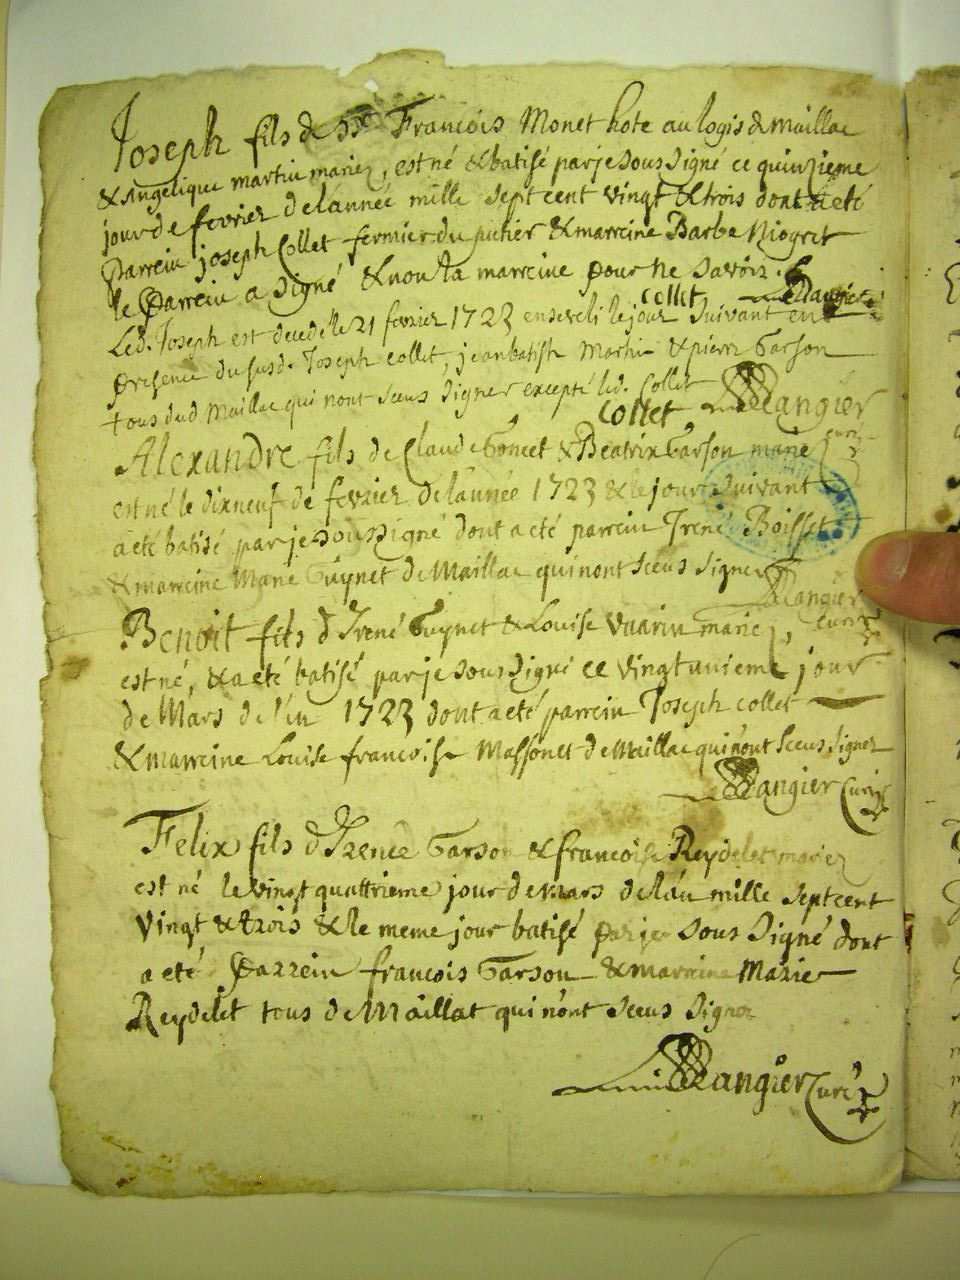 Joseph fils de Sr Francois Monet hote au logis de Maillac
& Angelique martin mariez, est né & batisé par je sous signé ce quinzieme
jour de fevrier de l'année mille sept cent vingt & trois dont a eté
Parrein joseph Collet fermier du & marreine Barbe Niogret
le Parrein a signé & non la marreine pour ne savoir.
collet Rangier
Led. Joseph est decedé le 21 fevrier 1723 enseveli le jour suivant en
presence du susd. Joseph collet, jean batiste Martin & pierre Garson
tous dud Maillac qui nont sceus signer excepté led. Collet
collet Rangier
curé
Alexandre fils de Claude Goncet & Beatrix Garson marie
est né le dixneuf de fevrier de l'année 1723 & le jour suivant
a eté batisé par je soussigné dont a eté parrein Irené Boisset
& marreine Marie Guynet de Maillac qui nont sceus signer
Rangier
curé
Benoit fils d Irené Guynet & Louise Vuarin mariez,
est né, & a eté batisé par je sous signé ce vingt unieme jour
de Mars de l'an 1723 dont a eté parrein Joseph collet
& marreine Louise francoise Massonet de Maillac qui nont sceus signer
Rangier curé
Felix fils d Irenée Garson & francoise Reydelet mariez
est né le vingt quattrieme jour de mars de l'an mille sept cent
vingt & trois & le meme jour batisé par je sous signé dont
a eté Parrein francois Garson & marreine Marie
Reydelet tous de Maillat qui nont sceus signer
Rangier curé